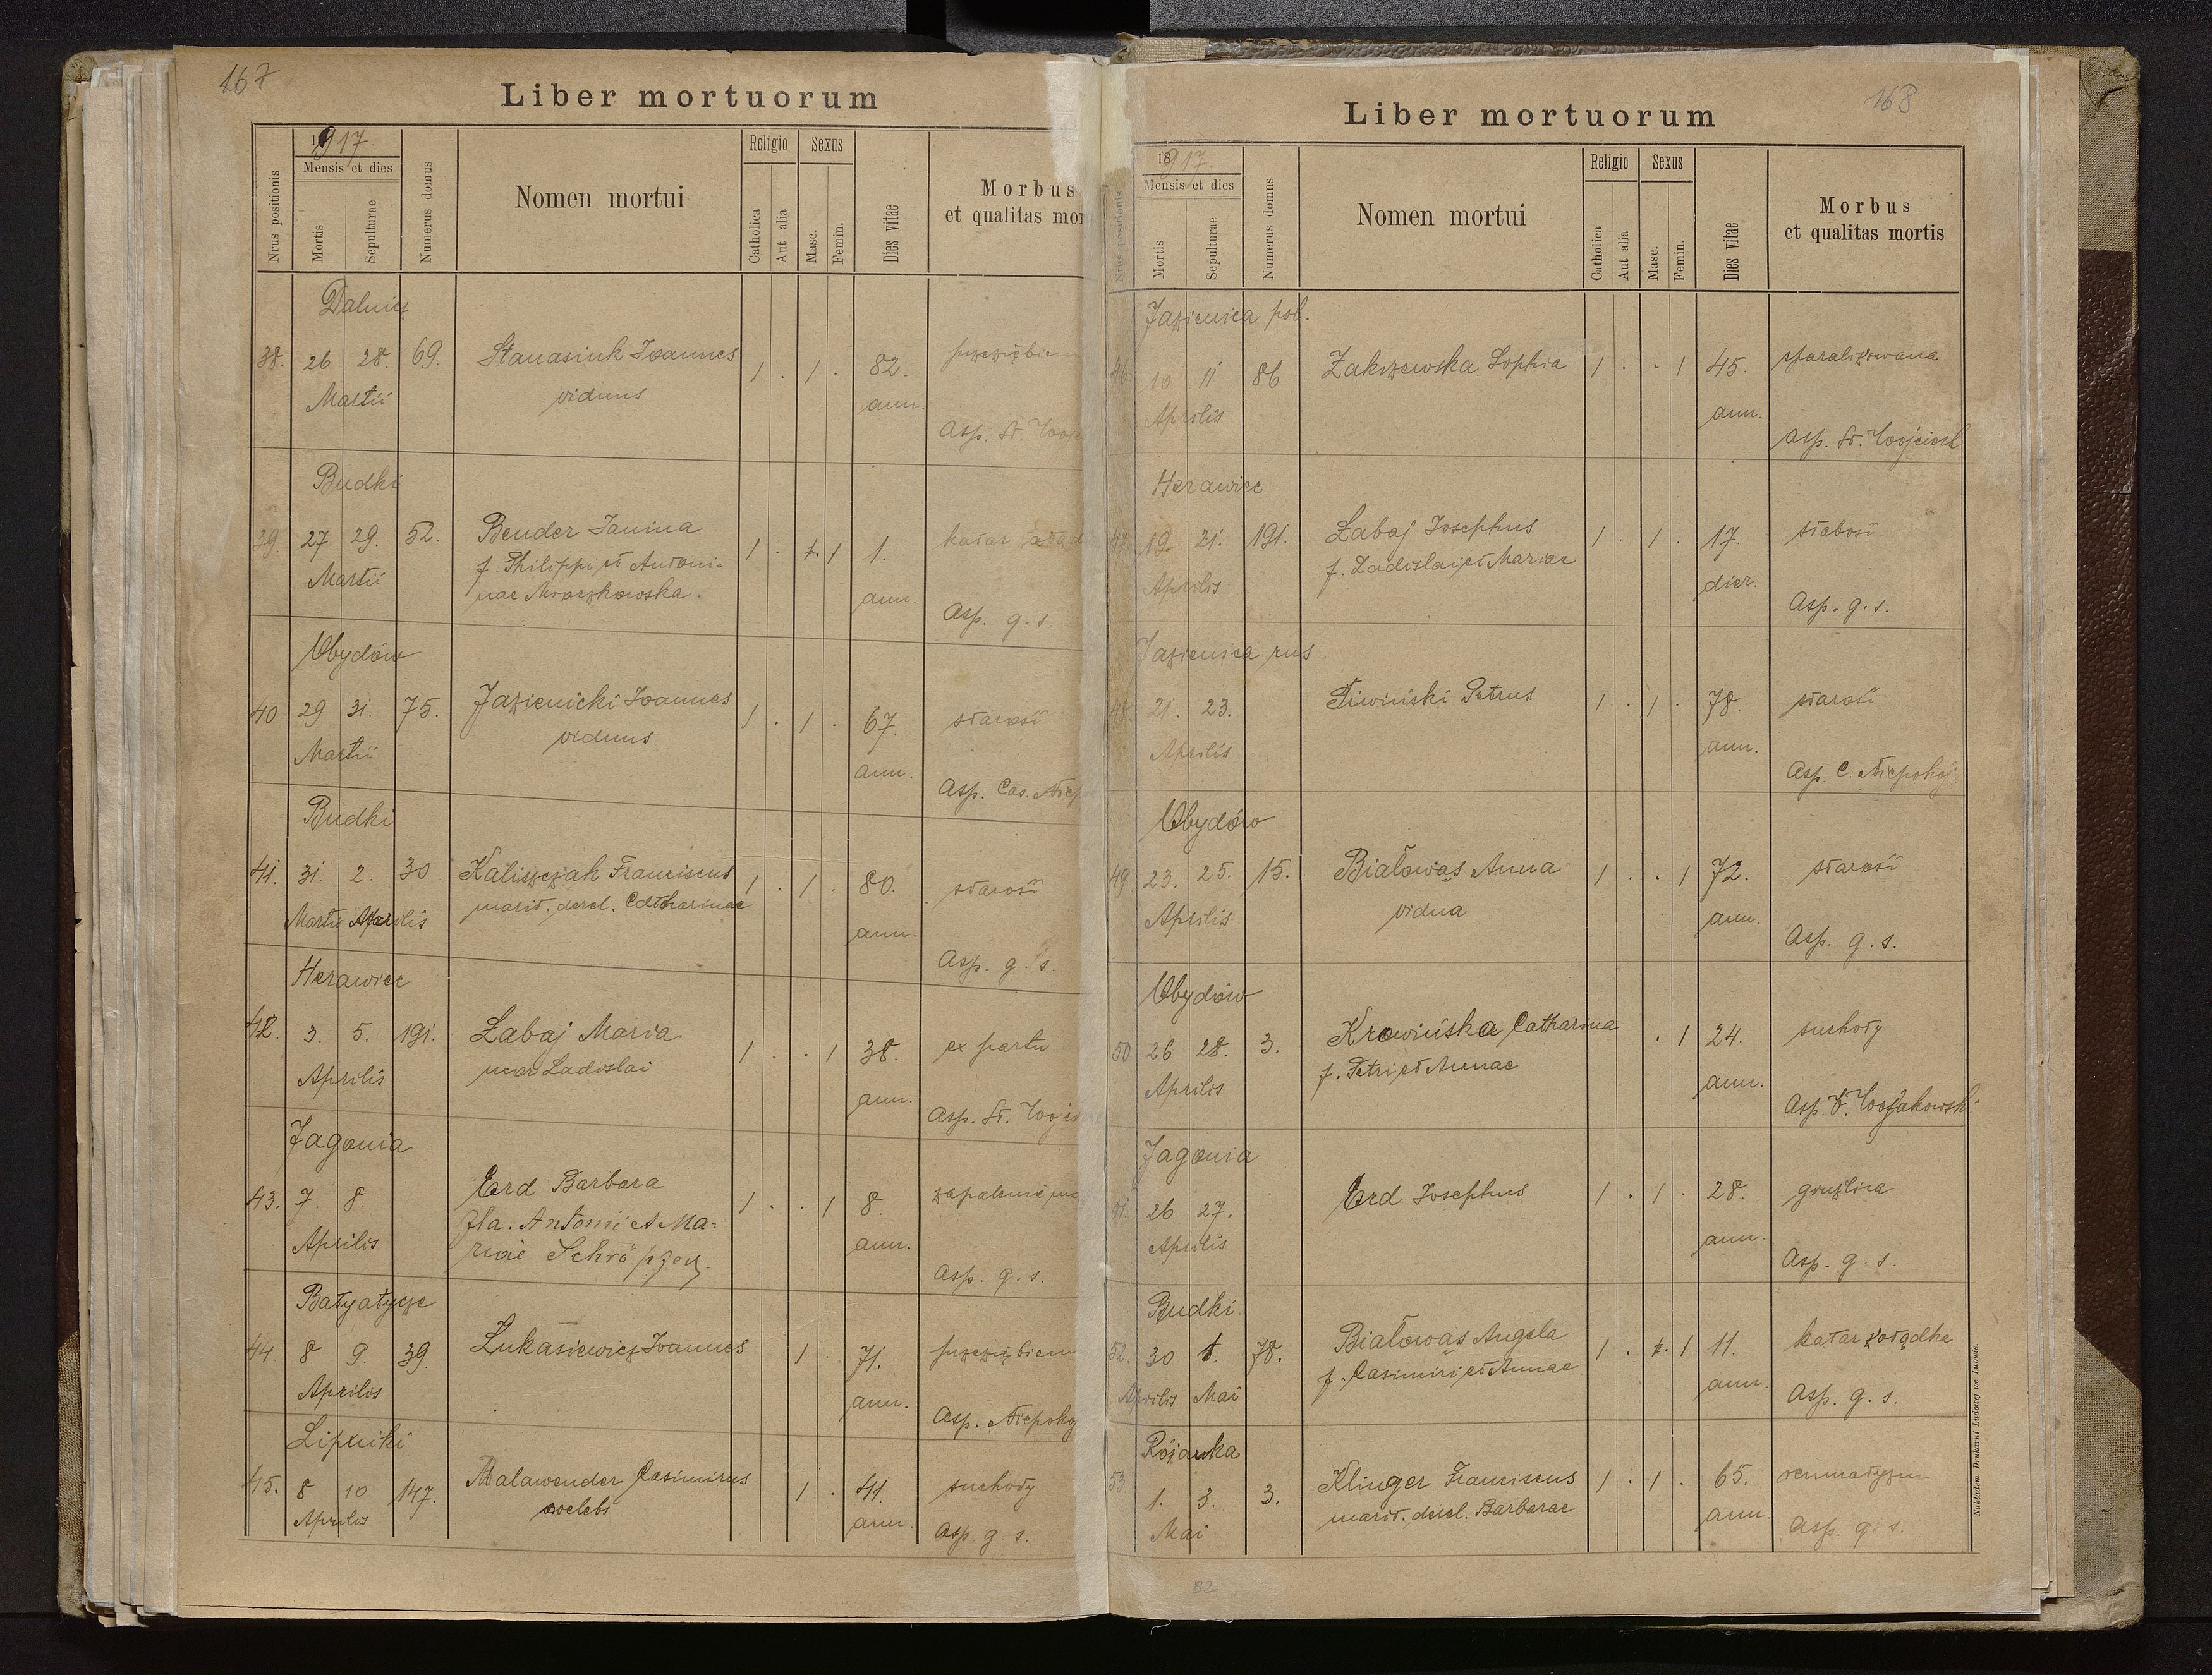 167
Liber mortuorum
1917.
Mensis et dies
Nrus positionis
Mortis
Sepulturae
Numerus domus
Nomen mortui
Religio
Catholica
Aut alia
Sexus
Masc.
Femin.
Dies vitae
Morbus
et qualitas mor
Dalnicz
38. 26 28. 69. Stanasiuk Joannes 1 . 1 . 82.
Martii viduus ann.
Asp. St.
Budki
39. 27 29. 52. Bender Janina 1 . 1. 1 1. katar
f. Philippi et Antoni-
Martii nae Mroczkowska. ann.
Asp. g. s.
Obydów
40 29 31. 75. Jazienicki Joannes 1 . 1 . 67. starość
Martii viduus ann.
Asp. Cas.
Budki
41. 31. 2. 30 Kaliszczak Franciscus 1 . 1 . 80. starość
Martii Aprilis marit. derel. Catharinae ann.
Asp. g. s.
Herawiec
42. 3. 5. 191. Łabaj Maria 1 . . 1 38. ex partu
Aprilis uxor Ladislai ann.
Asp. St.
Jagonia
43. 7. 8. Erd Barbara 1 . . 1 8. zapalenie
fla. Antonii et Ma-
Aprilis riae ann.
Asp. g. s.
Batyatycze
44. 8 9. 39. Łukasiewicz Joannes 1 . 71.
Aprilis ann.
Asp. Niepokoj
Lipniki
45. 8 10 147. Malawender Casimirus 1 . 41. suchoty
Aprilis coelebs ann.
Asp g. s.
168
Liber mortuorum
18917.
Mensis et dies
Nrus positionis
Mortis
Sepulturae
Numerus domus
Nomen mortui
Religio
Catholica
Aut alia
Sexus
Masc.
Femin.
Dies vitae
Morbus
et qualitas mortis
Jazienica pol.
46. 10 11 86 Zakrzewska Sophia 1 . . 1 45. sparaliżowana
Aprilis ann.
Asp. St. Wojciech
Herawiec
47. 19. 21. 191. Łabaj Josephus 1 . 1 . 17. słabość
f. Ladislai et Mariae
Aprilis dier.
Asp. g. s.
Jazienica rus
48. 21. 23. Petrus 1 . 1 . 78. starość
Aprilis ann.
Asp. C. Niepokoj.
Obydów
49 23. 25. 15. Białowąs Anna 1 . . 1 72. starość
Aprilis vidua ann.
Asp. g. s.
Obydów
50 26 28. 3. Krowińska Catharina . 1 24. suchoty
Aprilis f. Petri et Annae ann.
Asp. V. Wojakowski
Jagonia
51. 26 27. Erd Josephus 1 . 1 . 28. gruźlica
Aprilis ann.
Asp. g. s.
Budki
52. 30 1. 78. Białowąs Angela 1 . 1. 1 11. katar żołądka
f. Casimiri et Annae
Aprilis Mai ann.
Asp. g. s.
Różanka
53. 1. 3. 3. Klinger Franciscus 1 . 1 . 65. reumatyzm
Mai marit. derel. Barbarae ann.
Asp. g. s.
Nakładem Drukarni Ludowej we Lwowie.
82